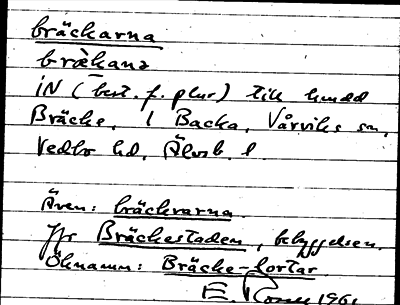 bräckarna
bræ̀kana
iN (best. f. plur) till hundd
Bräcke, 1 Backa, Vårviks sn,
Vedbo hd, Älvsb. l.
Även: bräckrarna.
Jfr Bräckestaden, bebyggelsen.
Öknamn: Bräcke-lortar.
E. 1961